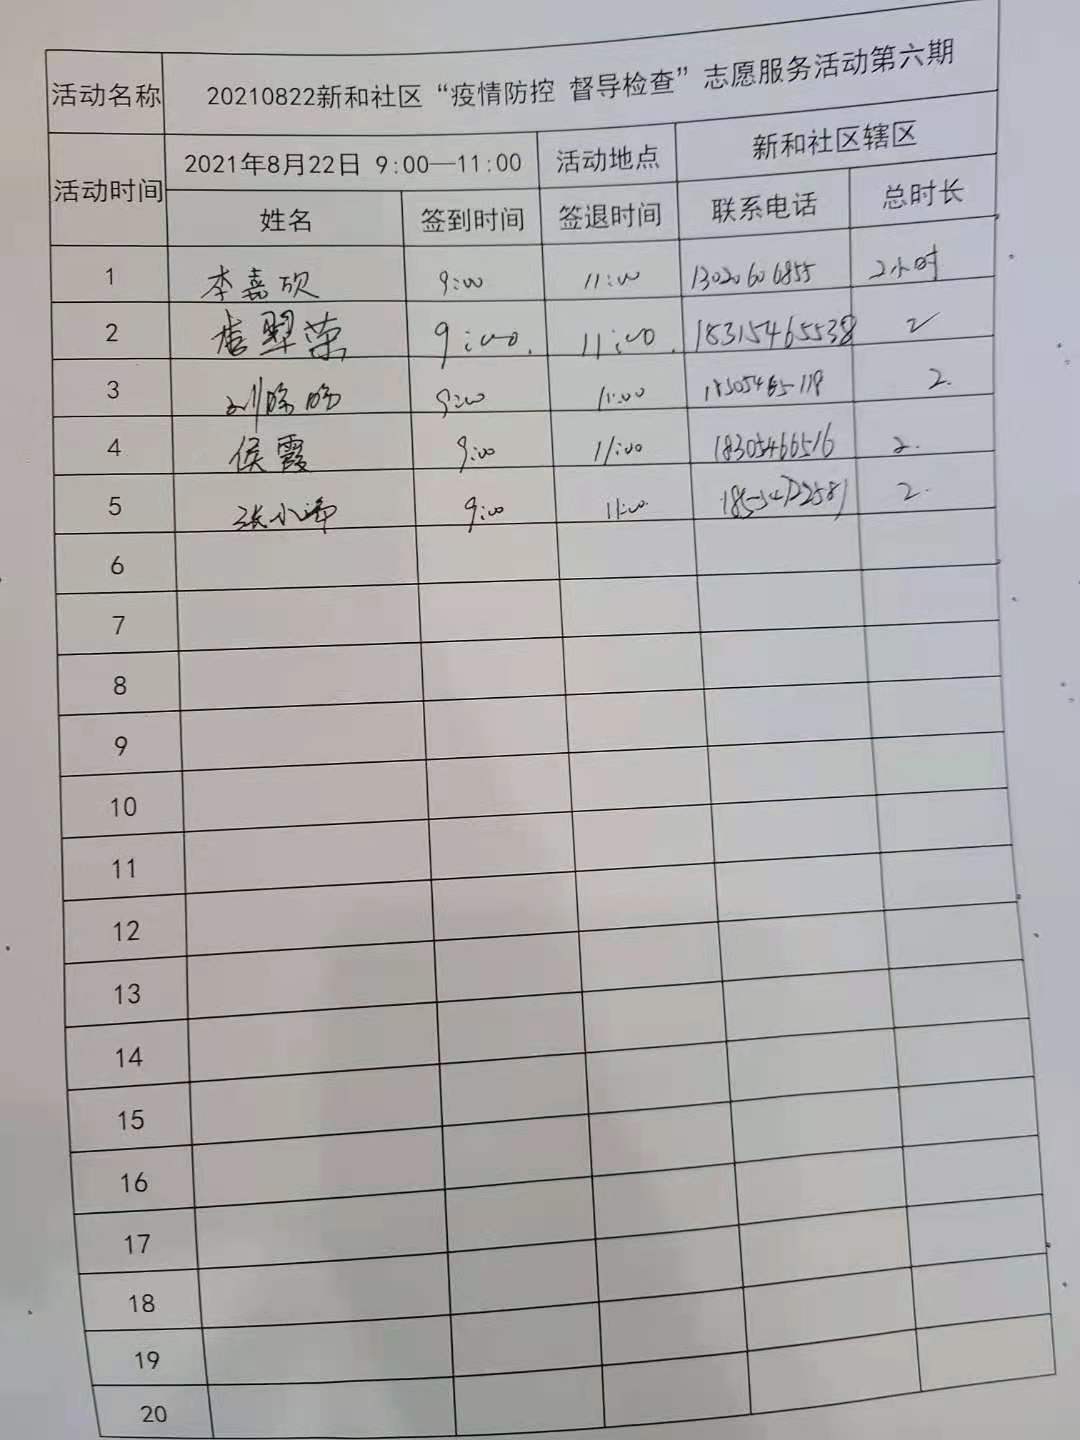 活动名称 20210822新和社区“疫情防控 督导检查”志愿服务活动第六期
活动时间 2021年8月22日 9:00—11:00 活动地点 新和社区辖区
姓名 签到时间 签退时间 联系电话 总时长
1 李嘉欣 9:00 11:00 13020606855 2小时
2 9:00. 11:00. 18315465538 2
3 9:00 11:00 2.
4 侯霞 9:00 11:00 18305466516 2.
5 张小 9:00 11:00 2.
6
7
8
9
10
11
12
13
14
15
16
17
18
19
20